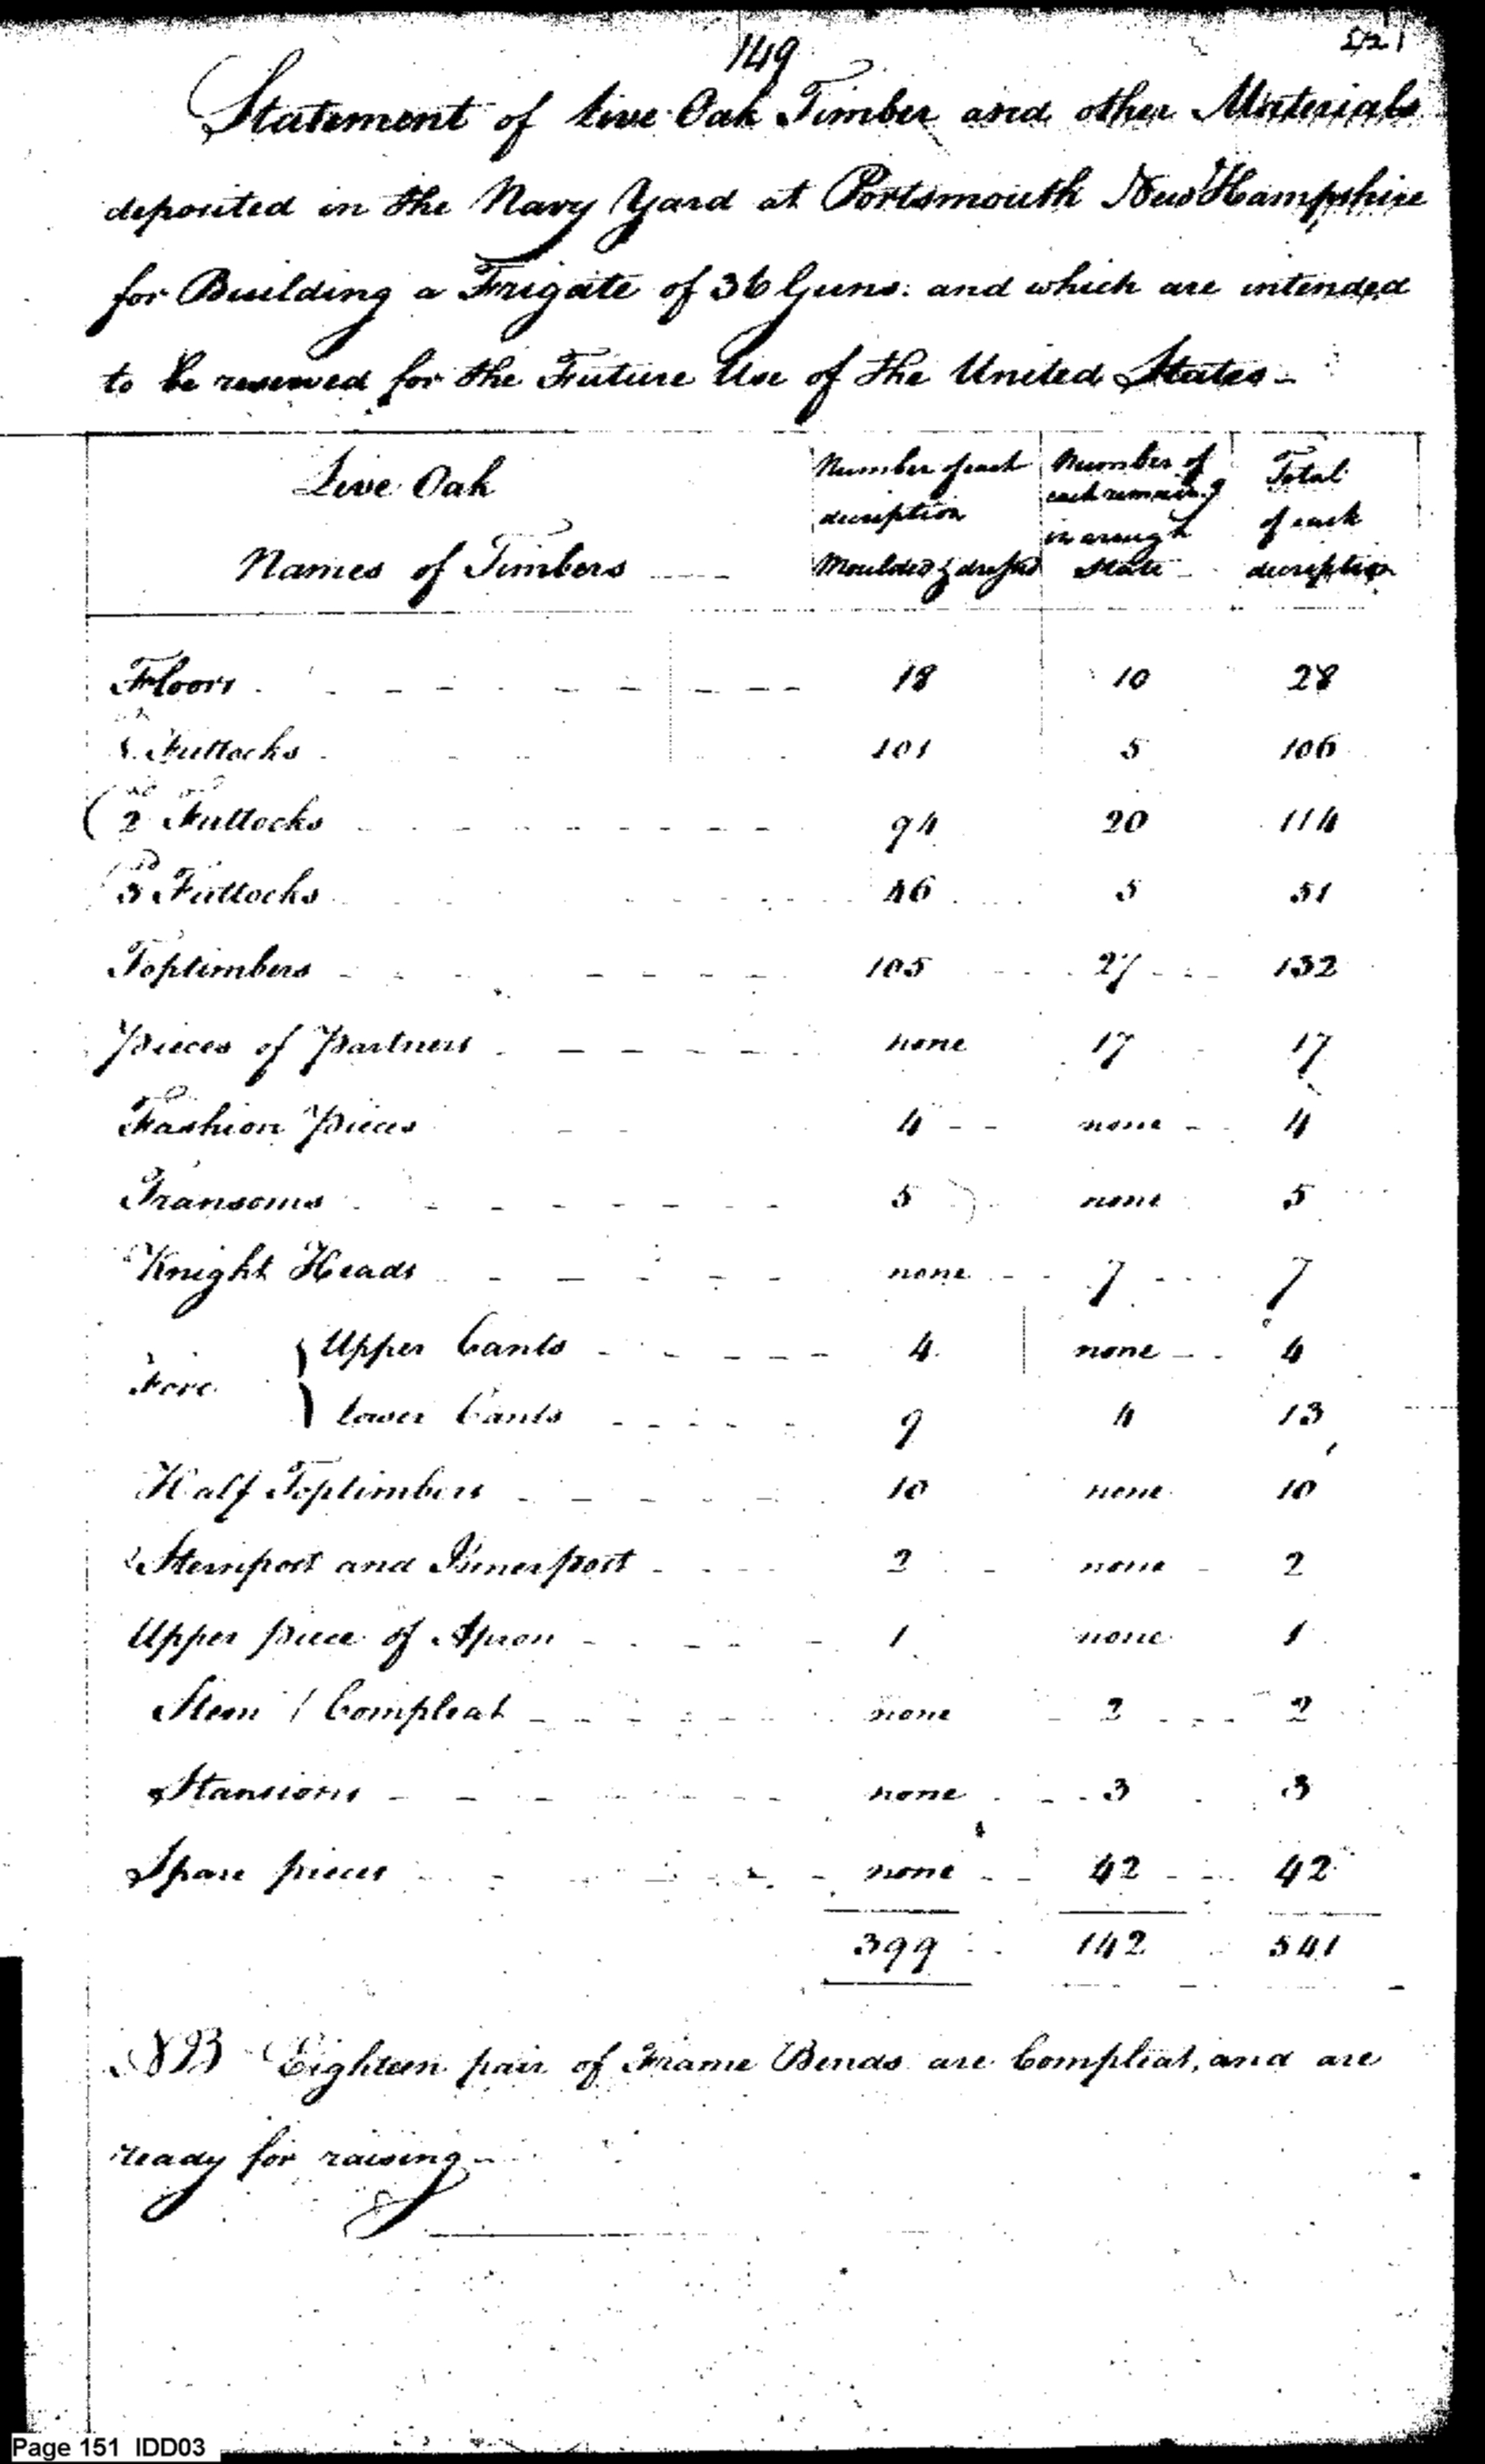 149
Statement of live Oak Timber and other Materials
deposited in the Navy Yard at Portsmouth New Hampshire
for Building a Frigate of 36 Guns. and which are intended
to be reserved for the Future Use of the United States -
Live Oak
Names of Timbers
Number of each
description
Moulded & dressed
Number of
each remaing
in a rough
State
Total
of each
description
Floors 18 10 28
1 Futtocks 101 5 106
2nd Futtocks 94 20 114
3rd Futtocks 46 5 51
Toptimbers 105 27 132
Pieces of Partners none 17 17
Fashion Pieces 4 none 4
Transoms 5 none 5
Knight Heads none 7 7
Fore { Upper Cants 4 none 4
} lower Cants 9 4 13
Half Toptimbers 10 none 10
Sternpost and Innerpost 2 none 2
Upper piece of Apron 1 none 1
Stem 1 Compleat none 2 2
Stansions none 3 3
Spare pieces none 42 42
399 142 541
NB Eighteen pair of Frame Bends are Compleat, and are
ready for raising
Page 151 IDD03